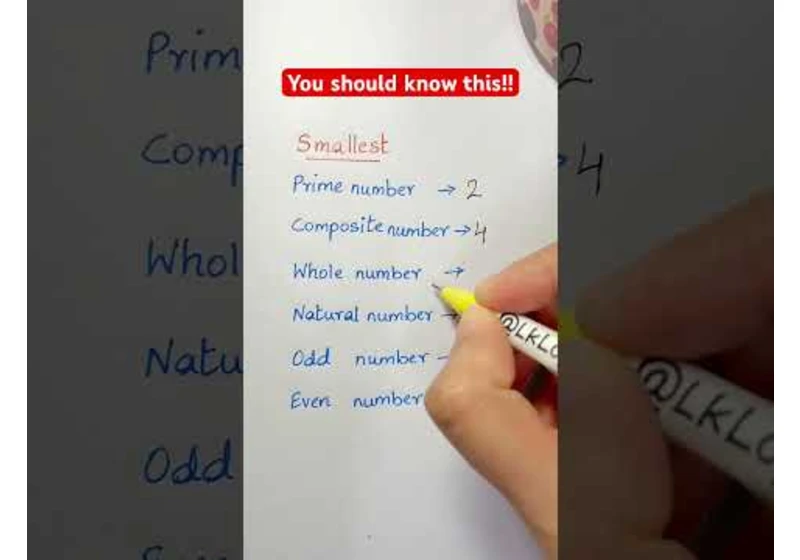 You should know this!!
Smallest
Prime number → 2
Composite number → 4
Whole number →
Natural number →
Odd number –
Even number
@LKLo